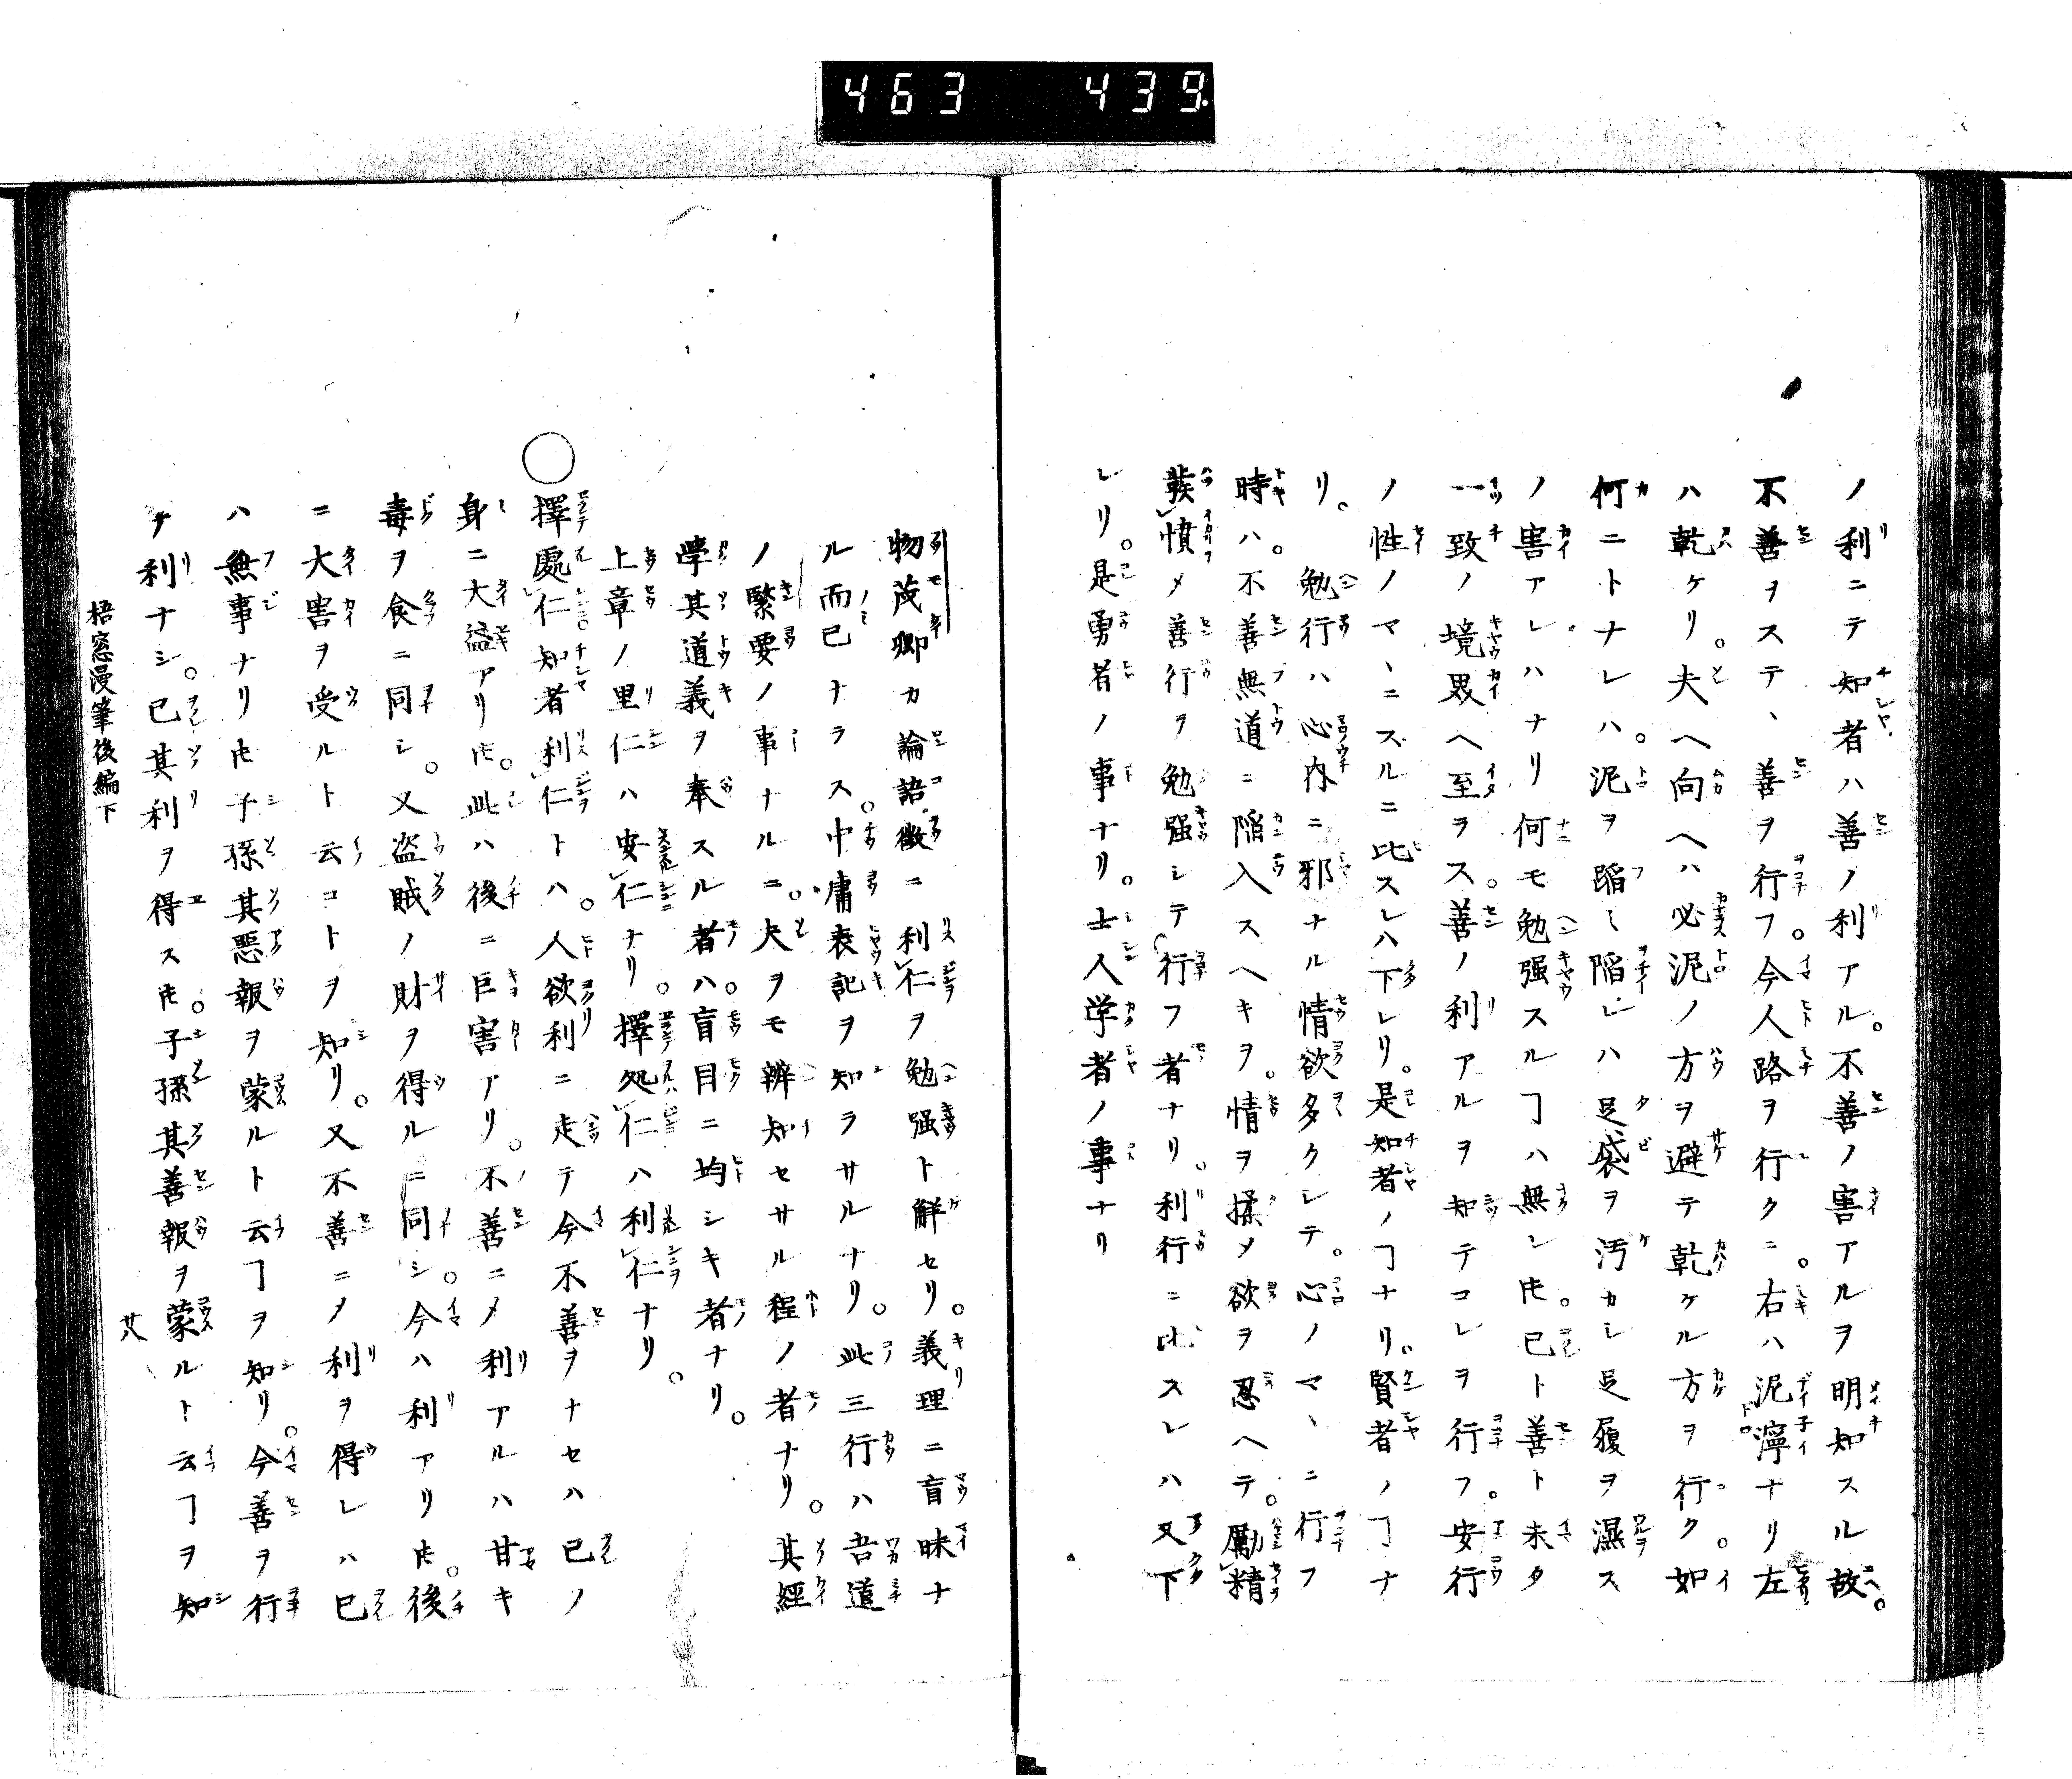 463 439.
ノ利ニテ知者ハ善ノ利アル。不善ノ害アルヲ明知スル故。
不善ヲステヽ善ヲ行フ。今人路ヲ行クニ。右ハ泥濘ナリ左
ハ乾ケリ。夫ヘ向ヘハ必泥ノ方ヲ避テ乾ケル方ヲ行ク。如
何ニトナレハ。泥ヲ蹈ミ陥レハ足袋ヲ汚カシ足履ヲ濕ス
ノ害アレハナリ何モ勉强スルヿハ無シ𪜈。已ト善ト未タ
一致ノ境界ヘ至ヲス。善ノ利アルヲ知テコレヲ行フ。安行
ノ性ノマヽニスルニ比スレハ下レリ。是知者ノヿナリ。賢者ノヿナ
リ。勉行ハ心内ニ邪ナル情欲多クシテ。心ノマヽニ行フ
時ハ。不善無道ニ陥入スヘキヲ。情ヲ揉メ欲ヲ忍ヘテ。勵精
發憤メ善行ヲ勉强シテ行フ者ナリ。利行ニ比スレハ又下
レリ。是勇者ノ事ナリ。士人学者ノ事ナリ
物茂卿カ論語徴ニ利仁ヲ勉强ト解セリ。義理ニ盲昧ナ
ル而已ナラス。中庸表記ヲ知ラサルナリ。此三行ハ吾道
ノ緊要ノ事ナルニ。夫ヲモ辨知セサル程ノ者ナリ。其經
學其道義ヲ奉スル者ハ。盲目ニ均シキ者ナリ。
上章ノ里仁ハ安仁ナリ。擇処仁ハ利仁ナリ。
○擇處仁知者利仁トハ。人欲利ニ走テ今不善ヲナセハ已ノ
身ニ大益アリ𪜈。此ハ後ニ巨害アリ。不善ニメ利アルハ甘キ
毒ヲ食ニ同シ。又盗賊ノ財ヲ得ルニ同シ。今ハ利アリ𪜈。後
ニ大害ヲ受ルト云コトヲ知リ。又不善ニメ利ヲ得レハ已
ハ無事ナリ𪜈子孫其惡報ヲ蒙ルト云ヿヲ知リ。今善ヲ行
テ利ナシ。已其利ヲ得ス𪜈。子孫其善報ヲ蒙ルト云ヿヲ知
梧窓漫筆後編下
廿八